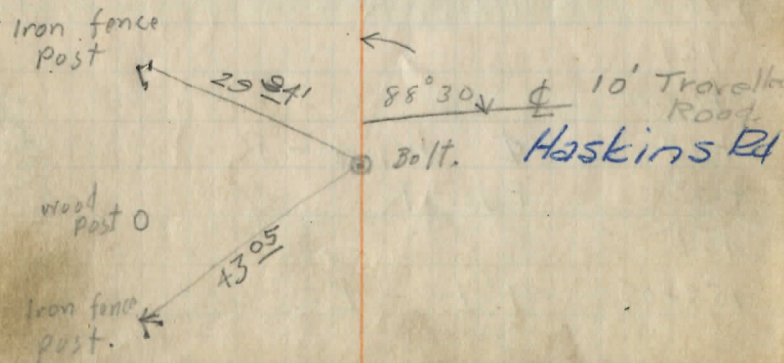 Iron fence
Post
29 841
88° 30
℄ 10' Travelled
Road
Bolt.
Haskins Rd
wood
post
43 05
Iron fence
post.